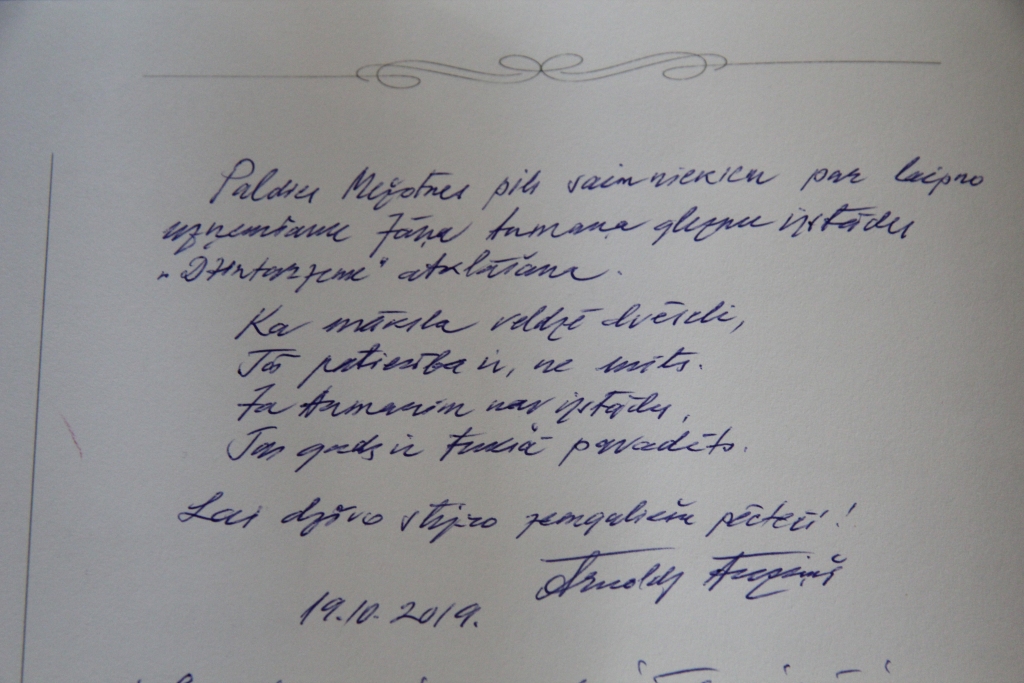 Paldies Mežotnes pils saimniekiem par laipno
uzņemšanu Jāņa Anmaņa gleznu izstādes
„Dzintarzeme“ atklāšanā.
Ka māksla veldzē dvēseli,
Tā patiesība ir, ne mīts.
Ja Anmanim nav izstādes,
Tas gads ir tukšā pavadīts.
Lai dzīvo stipro zemgaliešu pēcteči!
Arnolds Auziņš
19.10.2019.